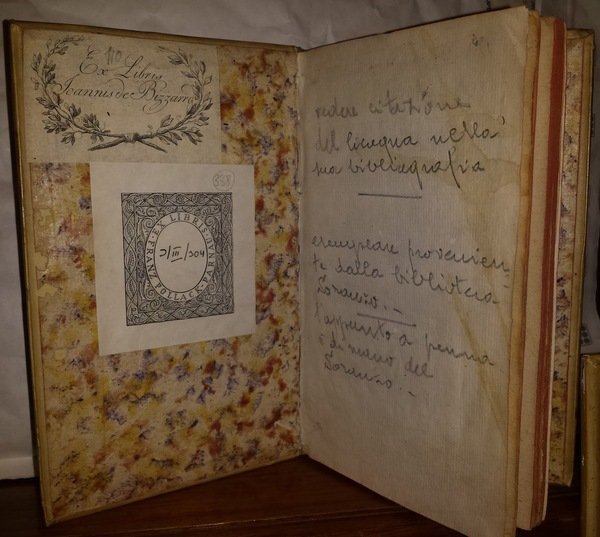 110
Ex Libris
Joannis de Bizzarro
338
EX LIBRIS
FRANZ POLLACK
2/III/304
vedere citazione
del Cicogna nella
sua bibliografia
esemplare provenien-
te dalla biblioteca
Soranzo.-
l'appunto a penna
è di mano del
Soranzo.-